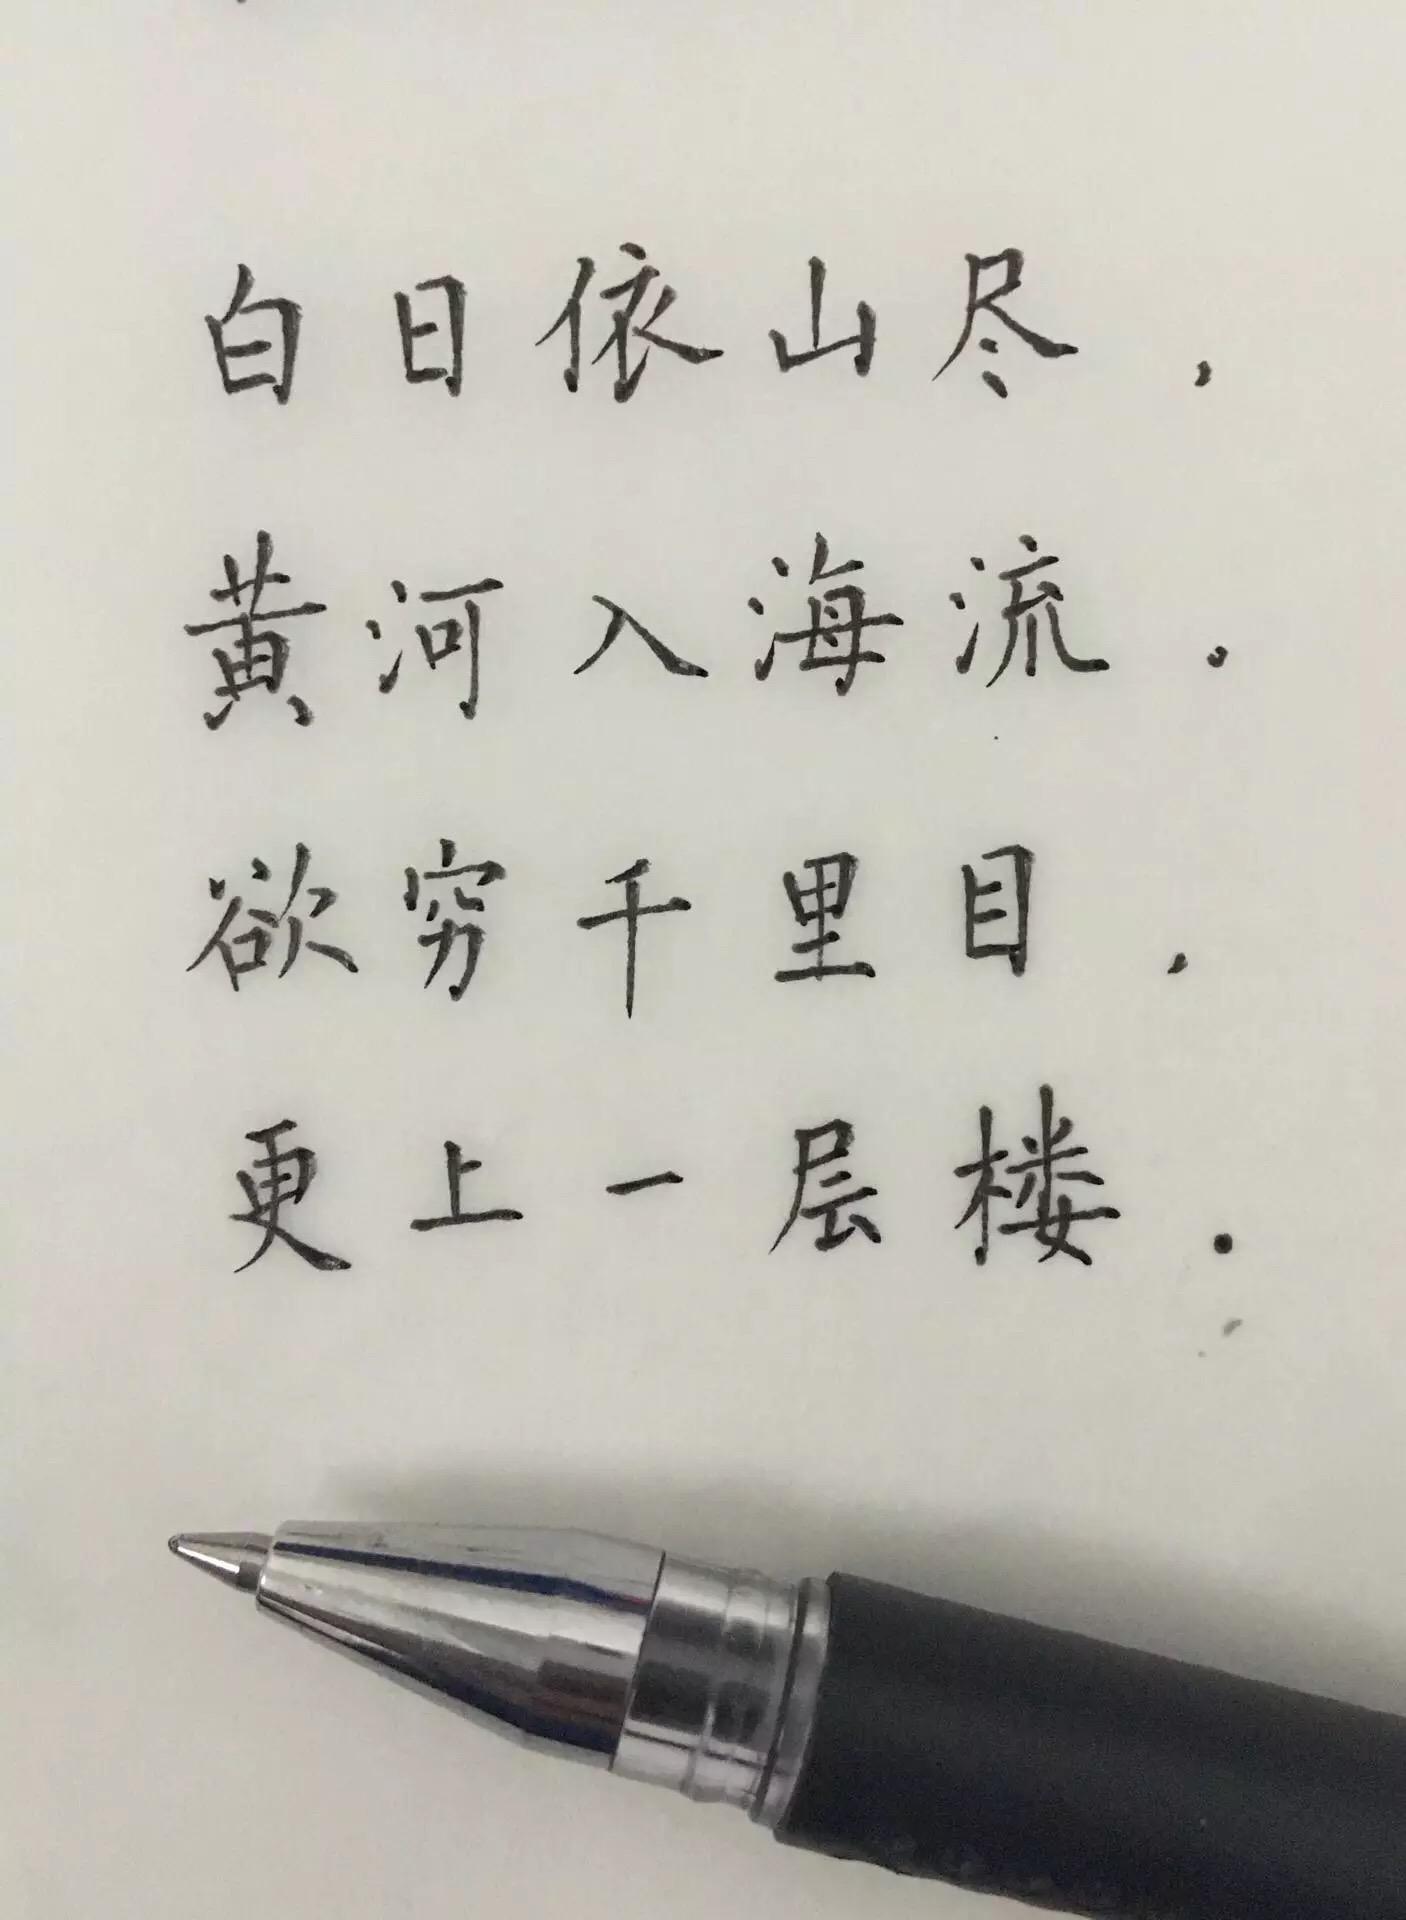 白日依山尽，
黄河入海流．
欲穷千里目，
更上一层楼．